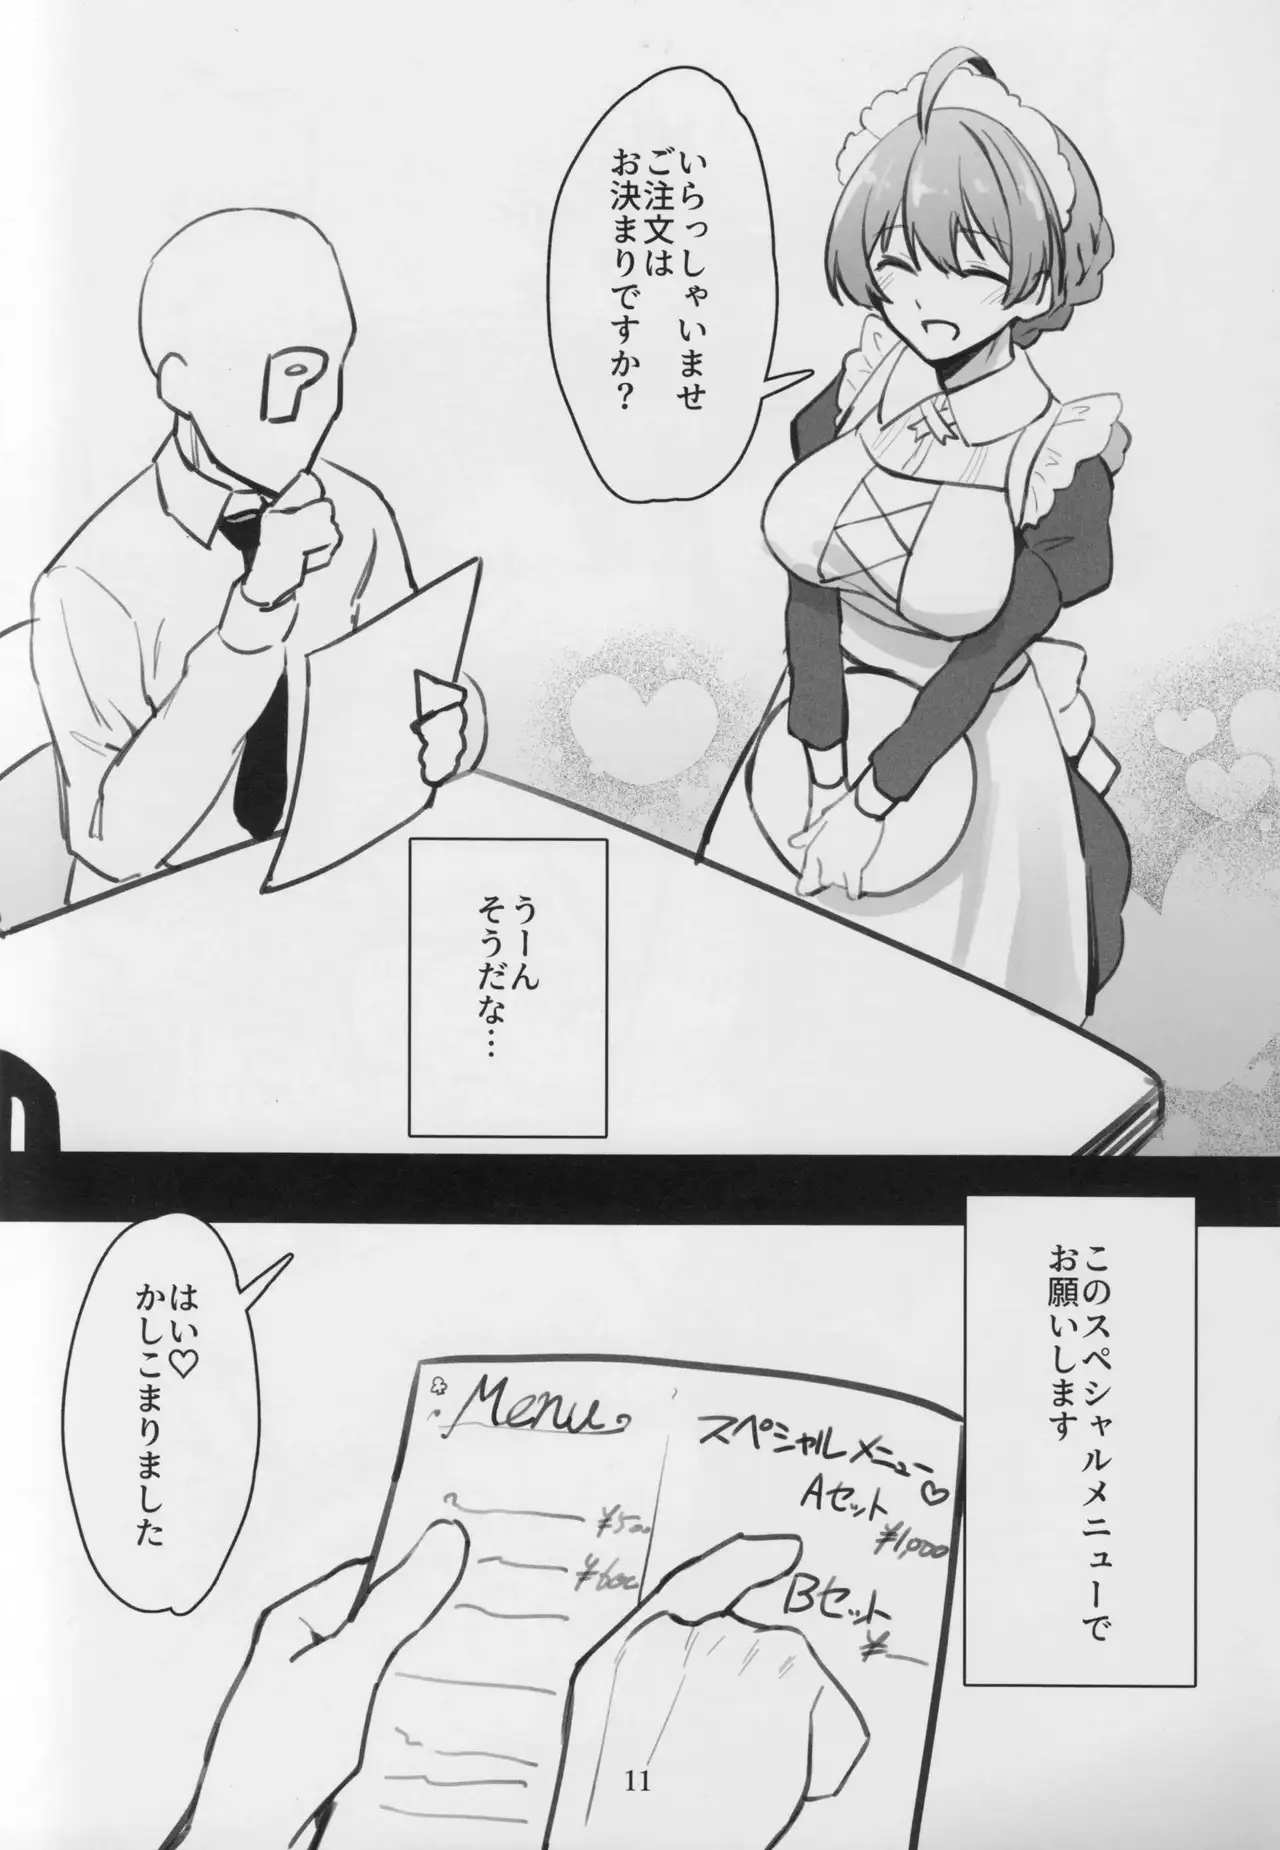 いらっしゃいませ
ご注文は
お決まりですか?
うーん
そうだな…
このスペシャルメニューで
お願いします
Menu
¥500
¥600
スペシャルメニュー♡
Aセット
¥1,000
Bセット
¥
はい♡
かしこまりました
11